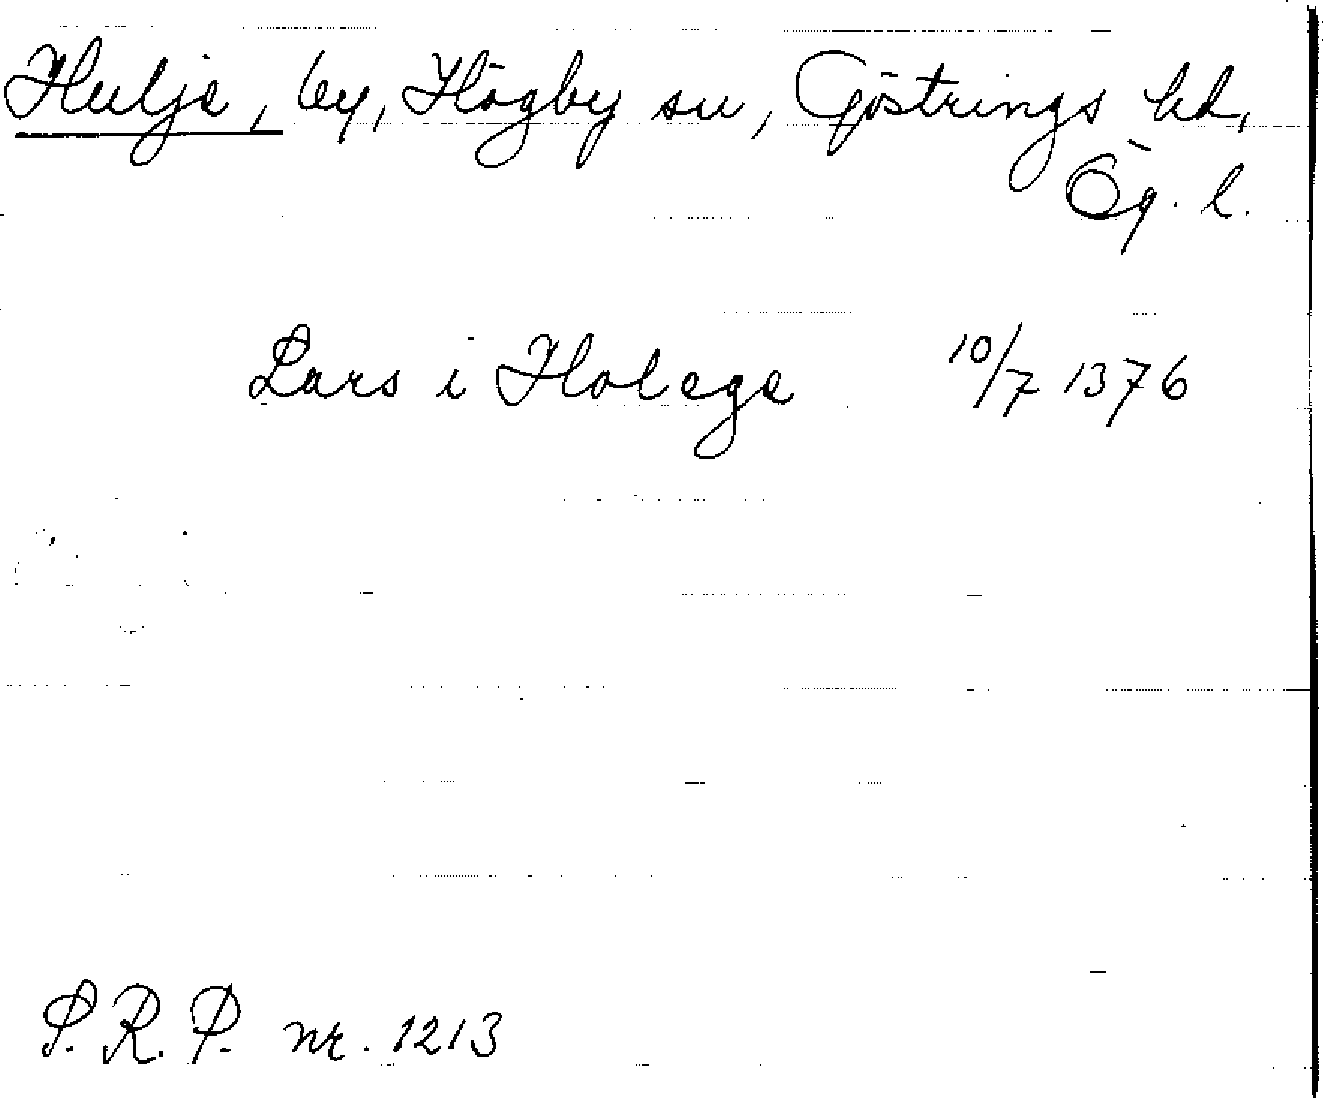 Hulje, by, Högby sn, Göstrings hd,
Ög. l.
Lars i Holege 10/7 1376
S.R.P. nr. 1213